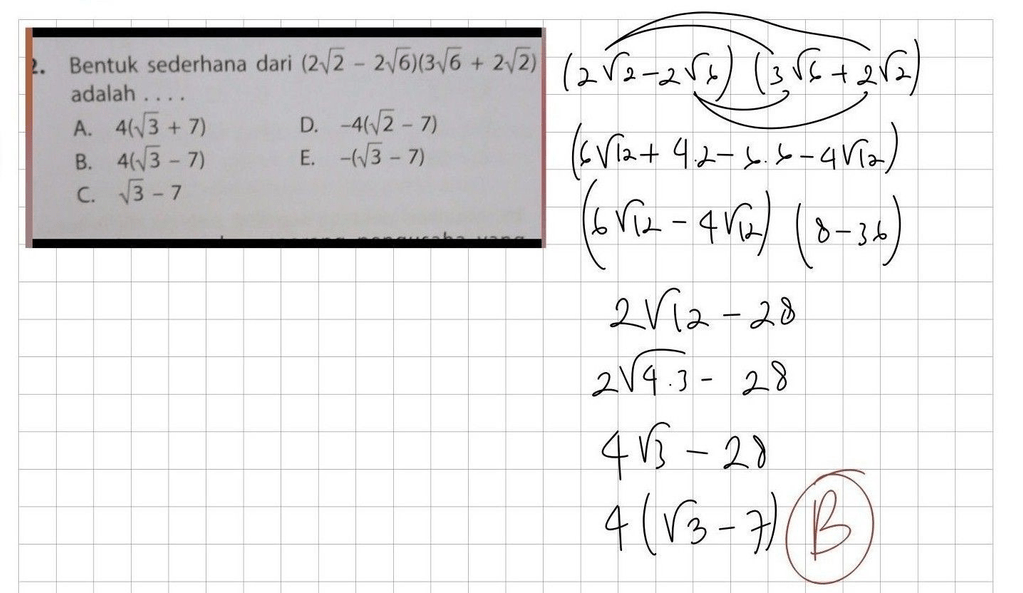 2. Bentuk sederhana dari (2√2 − 2√6)(3√6 + 2√2)
adalah . . . .
A. 4(√3 + 7)
B. 4(√3 − 7)
C. √3 − 7
D. −4(√2 − 7)
E. −(√3 − 7)
(2√2 − 2√6) (3√6 + 2√2)
(6√12 + 4.2 − 6.6 − 4√12)
(6√12 − 4√12) (8 − 36)
2√12 − 28
2√4.3 − 28
4√3 − 28
4(√3 − 7) B